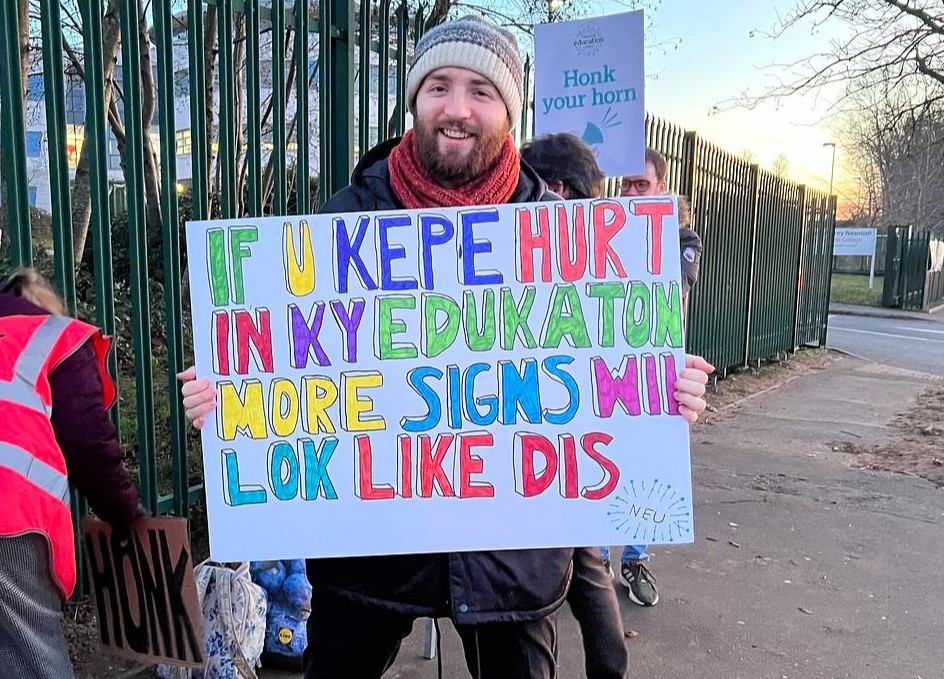 education
Honk
your horn
IF U KEPE HURT
IN KY EDUKATON
MORE SIGNS WIL
LOK LIKE DIS
NEU
HONK
Newman
College